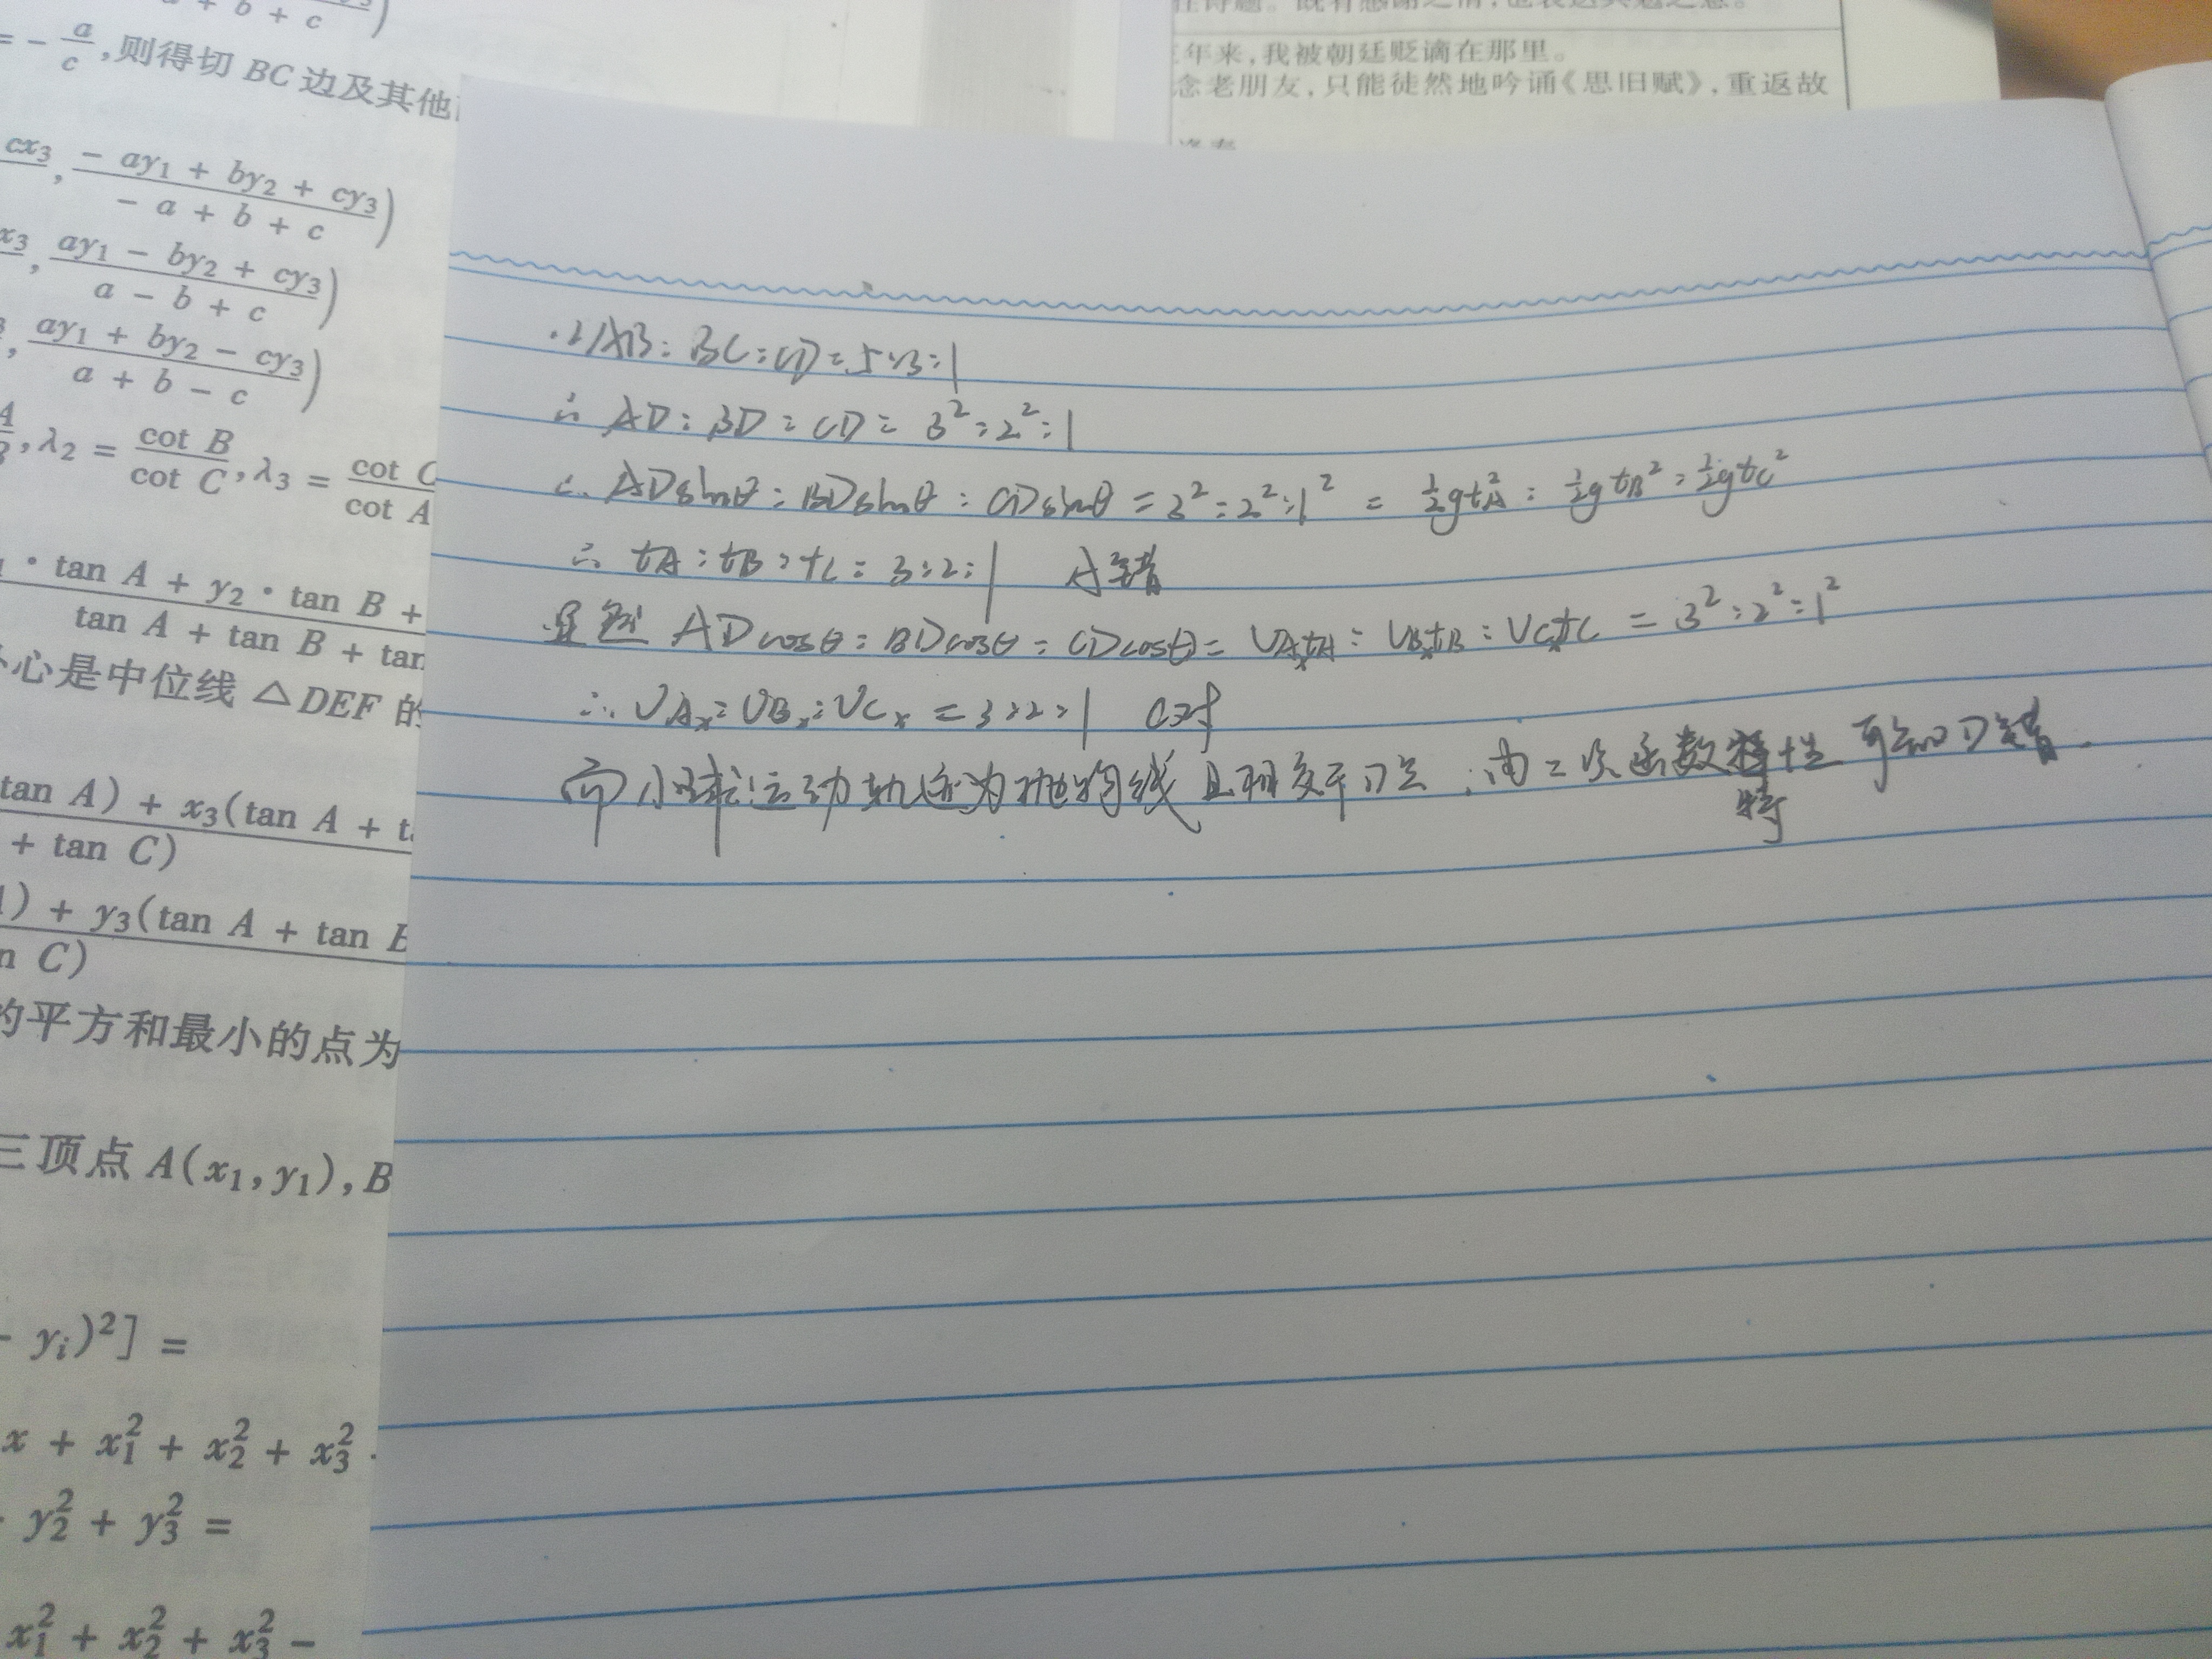 a + b + c
= - a/c ,则得切 BC 边及其他
cx₃ , (- ay₁ + by₂ + cy₃)/(- a + b + c) )
x₃ , (ay₁ - by₂ + cy₃)/(a - b + c) )
, (ay₁ + by₂ - cy₃)/(a + b - c) )
, λ₂ = cot B/cot C , λ₃ = cot C/cot A
· tan A + y₂ · tan B +
tan A + tan B + tan
心是中位线 △DEF 的
tan A) + x₃(tan A + t
+ tan C)
) + y₃(tan A + tan B
n C)
的平方和最小的点为
三顶点 A(x₁, y₁), B
- yᵢ)²] =
x + x₁² + x₂² + x₃²
y₂² + y₃² =
x₁² + x₂² + x₃² -
年来,我被朝廷贬谪在那里。
念老朋友,只能徒然地吟诵《思旧赋》,重返故
∵AB:BC:CD=5:3:1
∴ AD:BD:CD= 3²:2²:1
∴ ADsinθ:BDsinθ:CDsinθ=3²:2²:1² = ½gtA²:½gtB²:½gtC²
∴ tA:tB:tC=3:2:1 A错
显然 ADcosθ:BDcosθ:CDcosθ= VAₓtA:VBₓtB:VCₓtC = 3²:2²:1²
∴VAₓ:VBₓ:VCₓ=3:2:1 C对
而小球运动轨迹为抛物线且相交于D点 ∴由二次函数特性 可知D错.